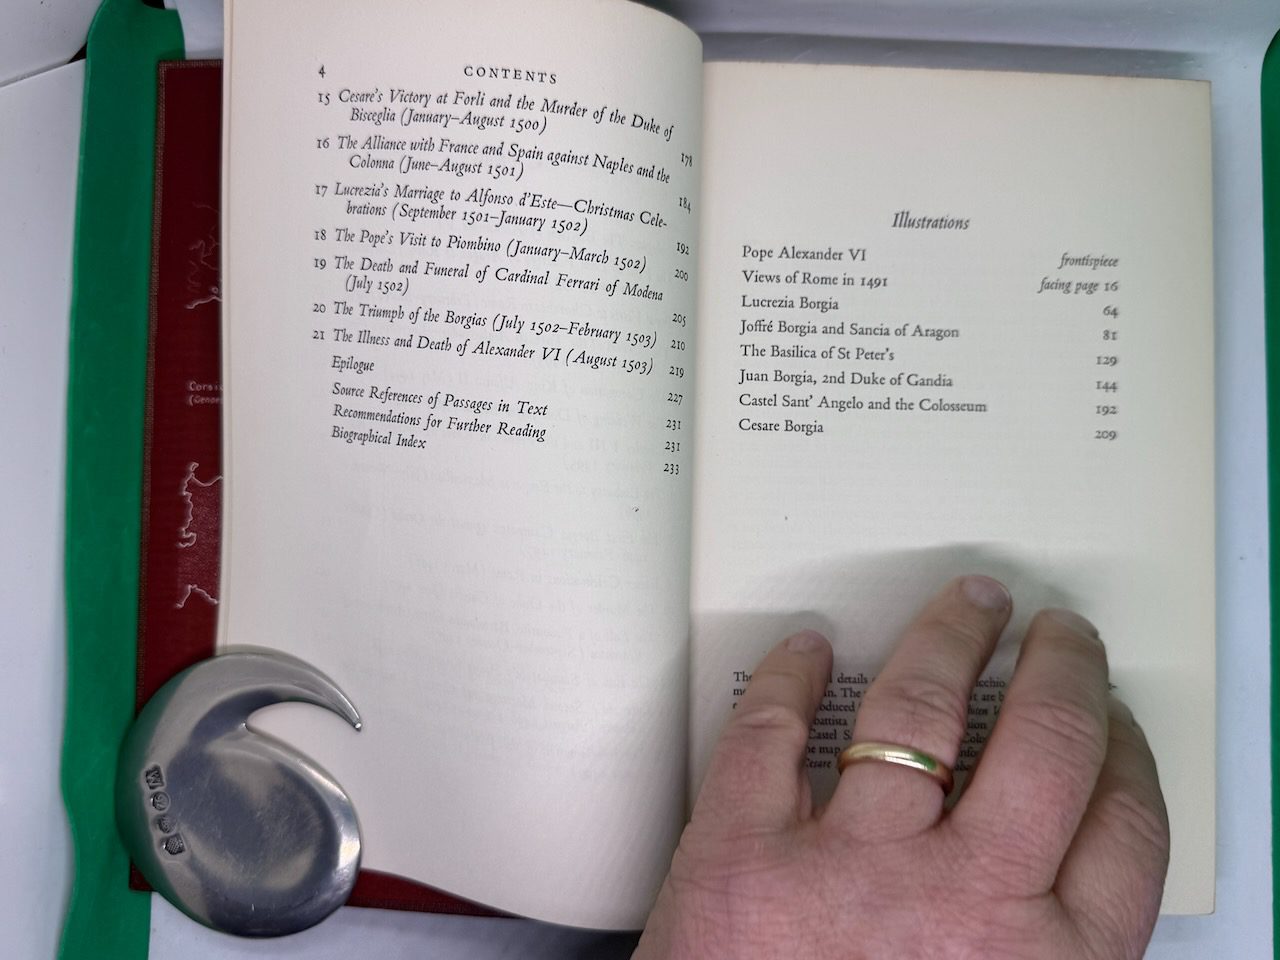 4 CONTENTS
15 Cesare's Victory at Forli and the Murder of the Duke of
Bisceglia (January–August 1500) 178
16 The Alliance with France and Spain against Naples and the
Colonna (June–August 1501) 184
17 Lucrezia's Marriage to Alfonso d'Este—Christmas Cele-
brations (September 1501–January 1502) 192
18 The Pope's Visit to Piombino (January–March 1502) 200
19 The Death and Funeral of Cardinal Ferrari of Modena
(July 1502) 205
20 The Triumph of the Borgias (July 1502–February 1503) 210
21 The Illness and Death of Alexander VI (August 1503) 219
Epilogue 227
Source References of Passages in Text 231
Recommendations for Further Reading 231
Biographical Index 233
Illustrations
Pope Alexander VI frontispiece
Views of Rome in 1491 facing page 16
Lucrezia Borgia 64
Joffré Borgia and Sancia of Aragon 81
The Basilica of St Peter's 129
Juan Borgia, 2nd Duke of Gandia 144
Castel Sant' Angelo and the Colosseum 192
Cesare Borgia 209
details
The
are
Castel
map
Cesare